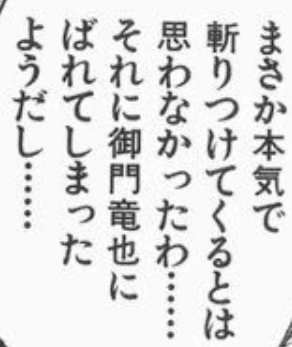 まさか本気で
斬りつけてくるとは
思わなかったわ……
それに御門竜也に
ばれてしまった
ようだし……